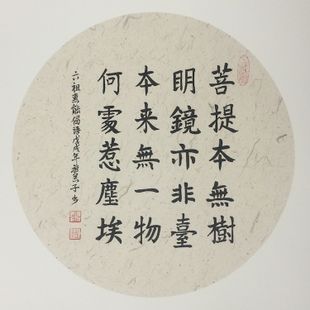 菩提本無樹
明鏡亦非臺
本来無一物
何處惹塵埃
六祖惠能偈語戊戌年